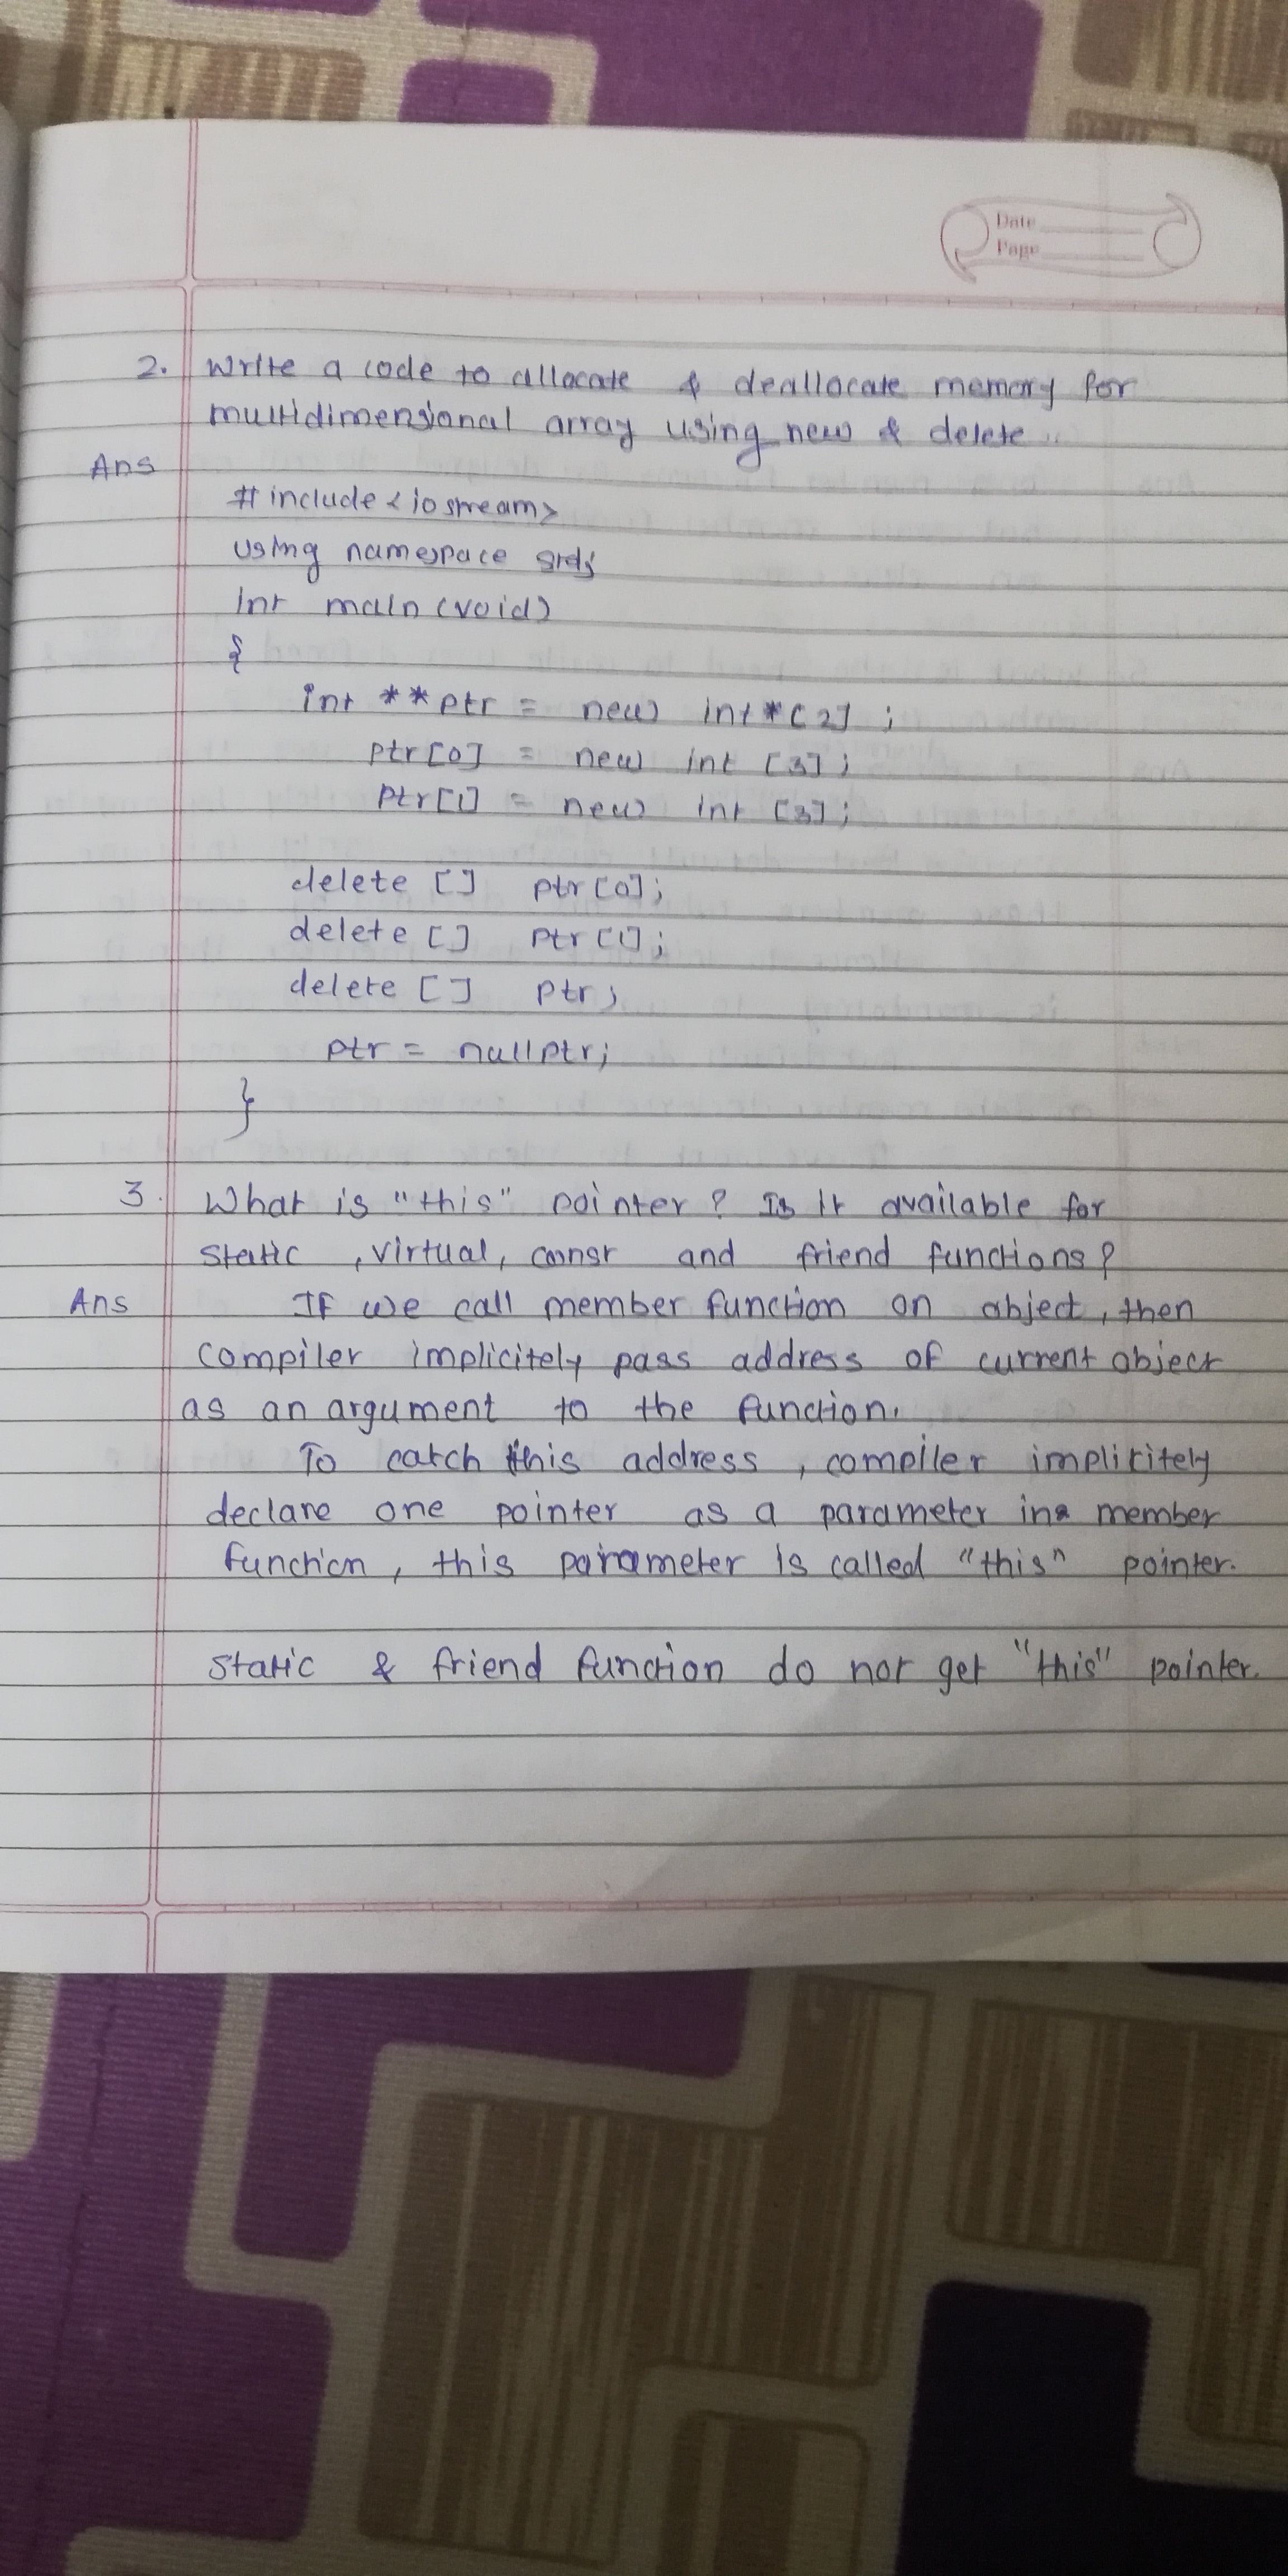 Date
Page
2. Write a code to allocate & deallocate memory for
multidimensional array using new & delete.
Ans
#include <iostream>
using namespace std;
int main (void)
{
int **ptr = new int*[2] ;
ptr[0] = new int [3];
ptr[1] = new int [3];
delete [] ptr[0];
delete [] ptr[1];
delete [] ptr;
ptr = nullptr;
}
3. What is "this" pointer? Is it available for
static , virtual, const and friend functions?
Ans If we call member function on object, then
compiler implicitely pass address of current object
as an argument to the function.
To catch this address , compiler implicitely
declare one pointer as a parameter in member
function , this parameter is called "this" pointer.
static & friend function do not get "this" pointer.